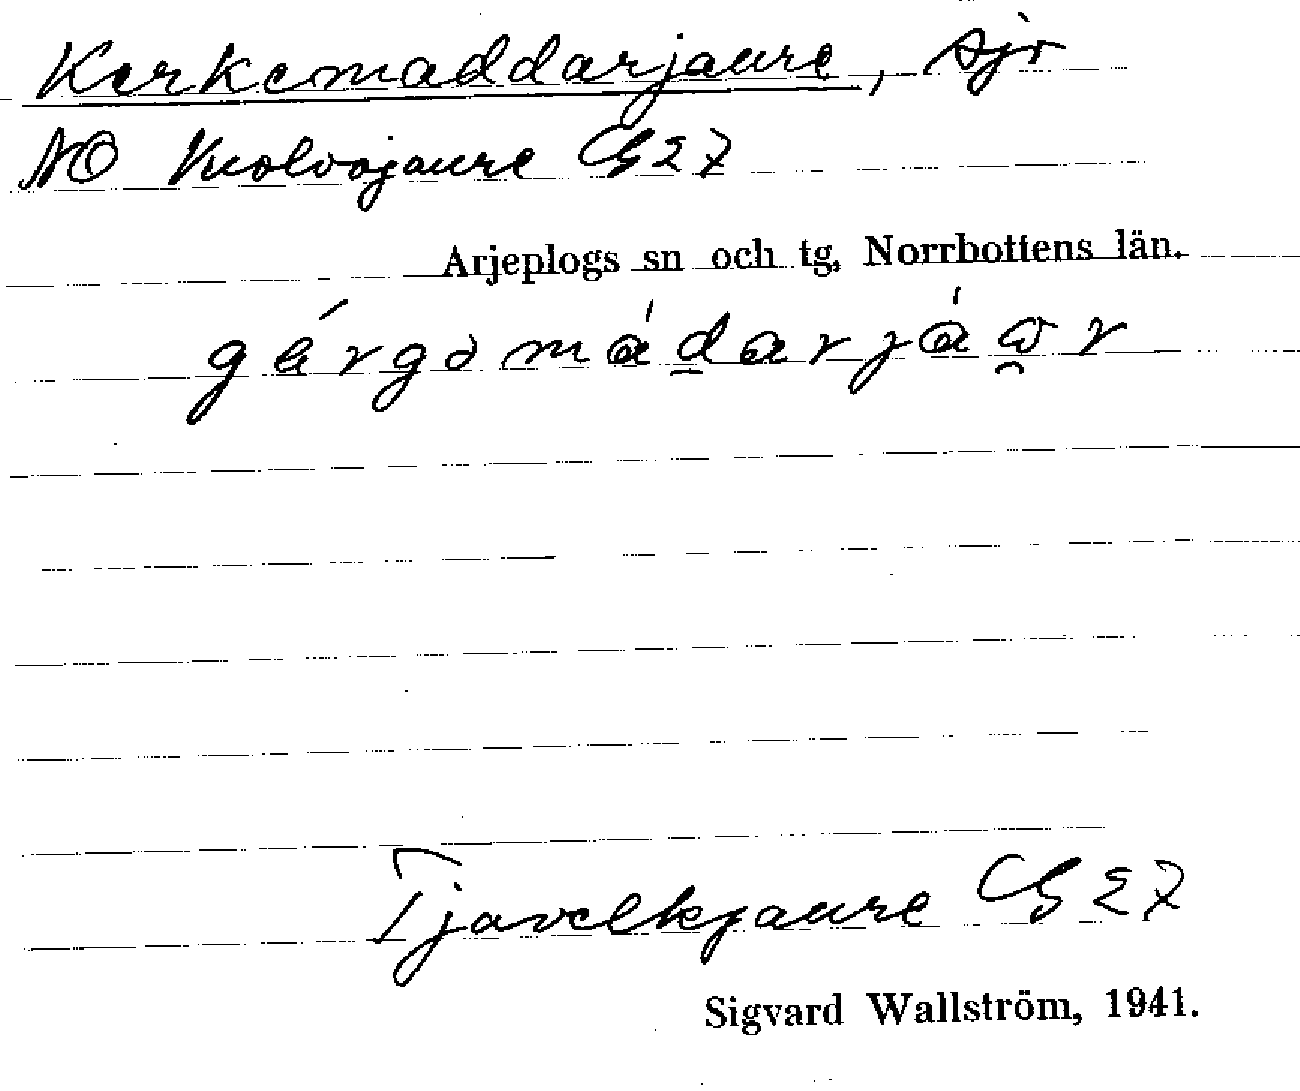 Kerkemaddarjaure, sjö
NO Vuolvojaure G 27
Arjeplogs sn och tg, Norrbottens län.
gérgəmádarjáu̯r
Tjavelkjaure G 27
Sigvard Wallström, 1941.